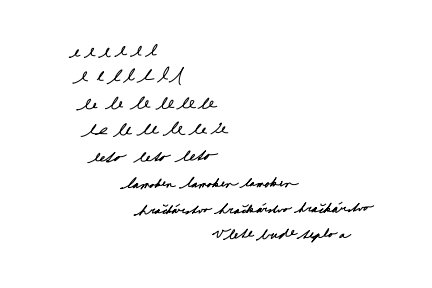 e e e e e e
e e l l l l l
le le le le le le
le le le le le le le
leto leto leto
lamoken lamoken lamoken
hračkárstvo hračkárstvo hračkárstvo
V lete bude teplo a